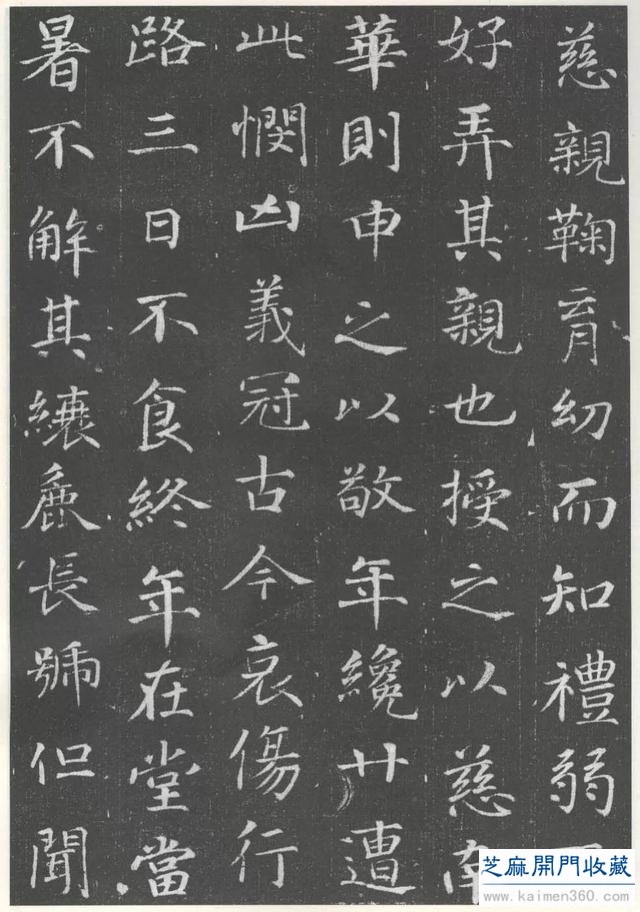 慈親鞠育幼而知禮弱
好弄其親也授之以慈南
華則申之以敬年纔廿遭
此憫凶義冠古今哀傷行
路三日不食終年在堂當
暑不解其纕麁長號但聞
芝麻開門收藏
www.kaimen360.com